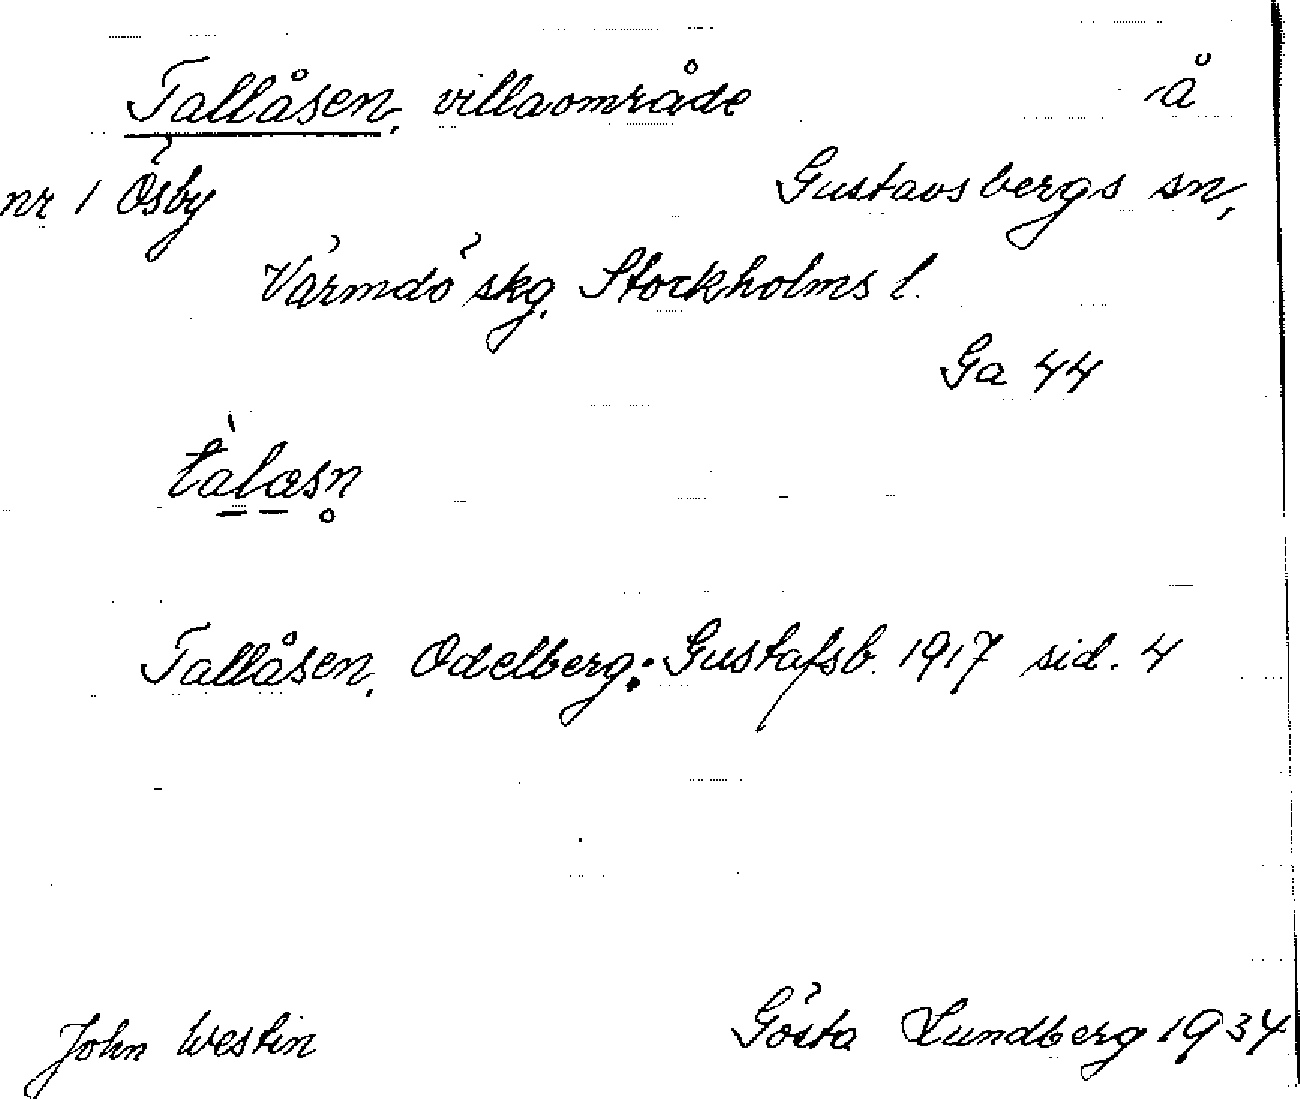 Tallåsen, villaområde å
nr 1 Ösby Gustavsbergs sn,
Värmdö skg. Stockholms l.
Ga 44
Tallåsen, Odelberg: Gustafsb. 1917 sid. 4
John Westin Gösta Lundberg 1934